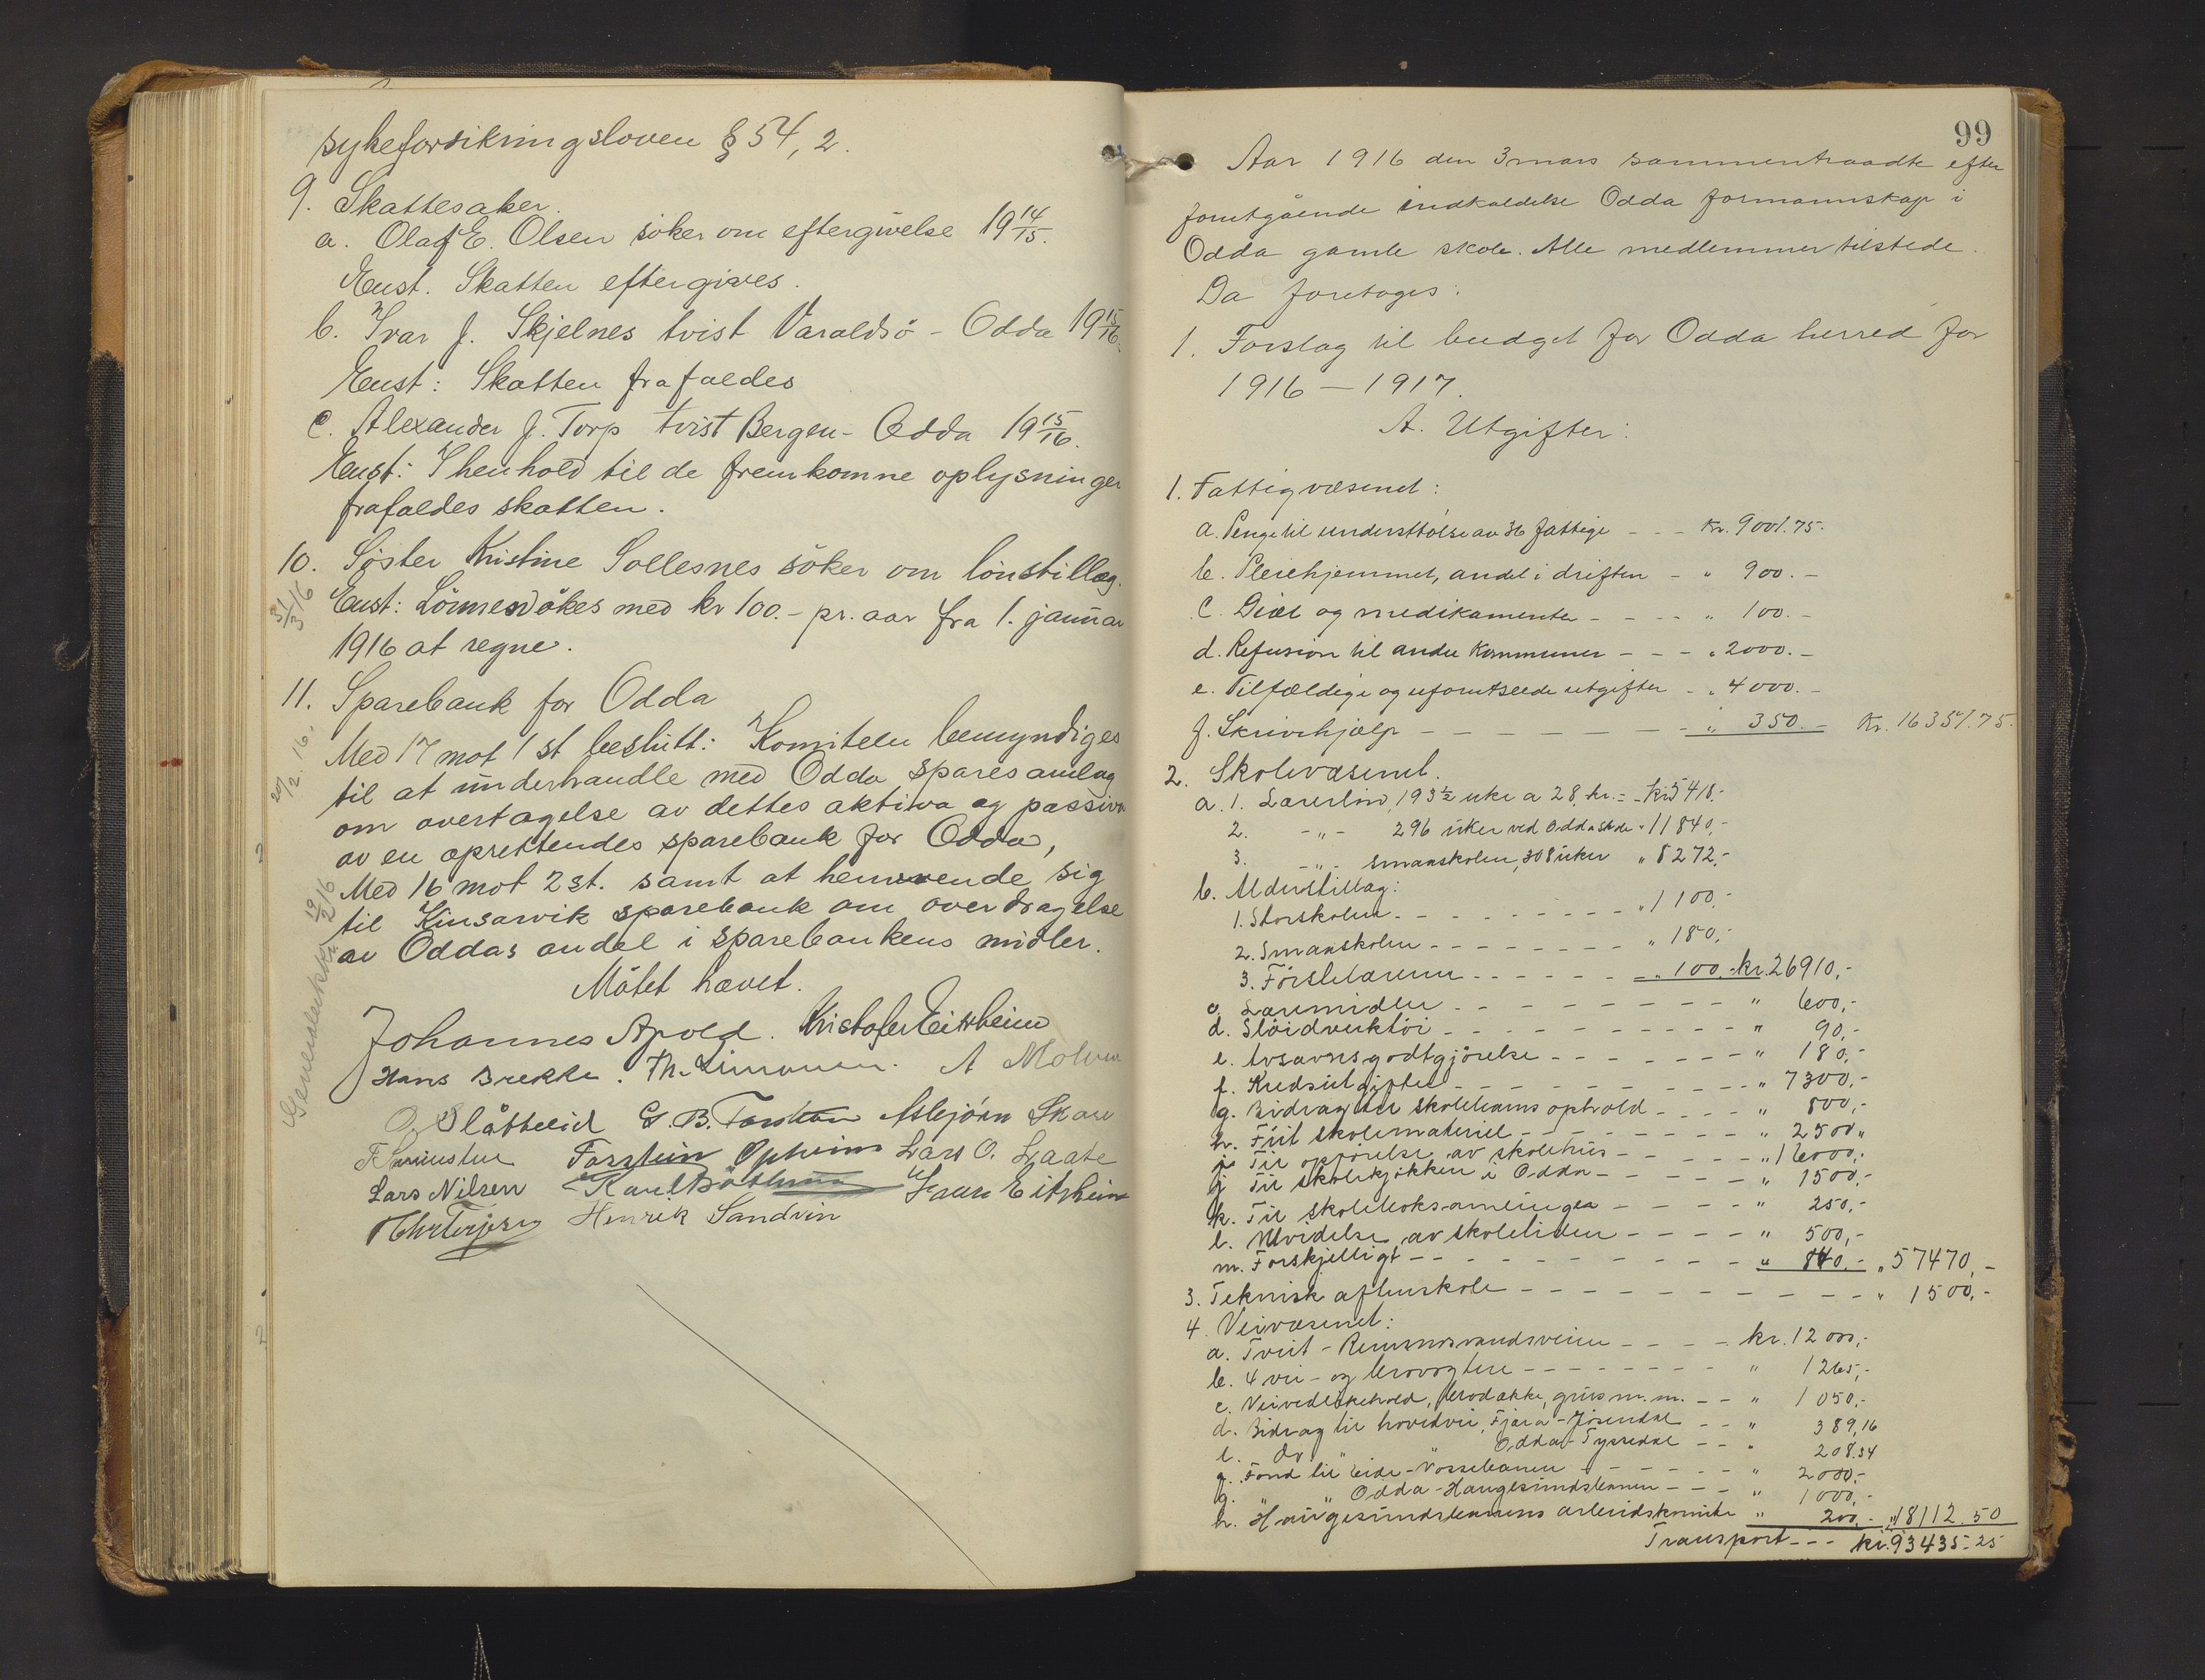 sykeforsikringsloven § 54, 2.
9. Skattesaker.
a. Olaf E. Olsen söker om eftergivelse 19 14/15.
Enst. Skatten eftergives.
b. Ivar J. Skjelnes tvist Varaldsö - Odda 19 15/16.
Enst: Skatten frafaldes
c. Alexander J. Torp tvist Bergen - Odda 19 15/16.
Enst: I henhold til de fremkomne oplysninger
frafaldes skatten.
10. Söster Kristine Sollesnes söker om lönstillæg.
31/3 16
Enst: Lönnen ökes med kr 100.- pr. aar fra 1. januar
1916 at regne.
11. Sparebank for Odda
20/2. 16.
Med 17 mot 1 st beslutt: Komiteen bemyndiges
til at underhandle med Odda sparesamlag
om overtagelse av dettes aktiva og passiva
av en oprettendes sparebank for Odda,
Med 16 mot 2 st. samt at henvende sig
til Kinsarvik sparebank om overdragelse
av Oddas andel i sparebankens midler.
19/2 16
Mötet hævet.
Johannes Apold. Kristofer Eitrheim
Hans Brekke. Th. Simonsen. A Molven
O. Slåttelid G. B. Asbjörn Skare
Torstein Opheim Lars O. Laate
Lars Nilsen Karl Lars Eitrheim
Chr Terjesen Henrik Sandvin
99
Aar 1916 den 3 mars sammentraadte efter
forutgående indkaldelse Odda formannskap i
Odda gamle skole. Alle medlemmer tilstede.
Da foretoges:
1. Forslag til budget for Odda herred for
1916 - 1917.
A. Utgifter:
1. Fattigvæsenet:
a. Penge til understtölse av 36 fattige - - - Kr. 9001.75.
b. Pleiehjemmet, andel i driften - " 900.-
c. Diæt og medikamenter - - - - " 100.-
d. Refusion til andre Kommuner - - - " 2000.-
e. Tilfældige og uforutseede utgifter - " 4000.-
f. Skrivehjælp - - - - - - - " 350.- Kr. 16351.75.
2. Skolevæsenet.
a. 1. Lærerlön 193½ uke a 28 kr. = - kr 5418.-
2. - " - 296 uker ved Odda skole " 11840,-
3. - " - smaaskolen, 308 uker " 8272,-
b. Alderstillæg:
1. Storskolen - - - - - - - - " 1100,-
2. Smaaskolen - - - - - - - " 180,-
3. Förstelæreren - - - - - " 100,- kr. 26910,-
c. Læremidler - - - - - - - - " 600,-
d. Slöidverktöi - - - - - - - - - " 90,-
e. Avsavnsgodtgjörelse - - - - - - - " 180,-
f. Kredsutgifter - - - - - - - - - " 7300,-
g. Bidrag til skolebarns ophold - - - - " 800,-
h. Frit skolemateriel - - - - - - - - " 2500,-
i. Til opförelse av skolehus - - - - - " 16000,-
j. Til skolekjökken i Odda - - - - - " 1500,-
k. Til skoleboksamlinger - - - - " 250,-
l. Utvidelse av skoletiden - - - - " 500,-
m. Forskjelligt - - - - - - - - - " 840.- " 57470,-
3. Teknisk aftenskole - - - - - - - - - - " 1500,-
4. Veivæsenet:
a. Tveit - Reinsnosvandsveien - - - - kr. 12000,-
b. 4 vei- og brovogtere - - - - - - - - " 1265,-
c. Veivedlikehold, brodække, grus m.m. - - " 1050,-
d. Bidrag til hovedvei, Fjæra - Jösendal - - " 389,16
e. do " " Odda - Tyssedal - - " 208.34
f. Fond til Eide - Vossebanen - - - - - - " 2000,-
g. " " Odda - Haugesundsbanen - - - " 1000,-
h. Haugesundsbanens arbeidskomite " 200,- " 18112.50
Transport - - - kr. 93435-25